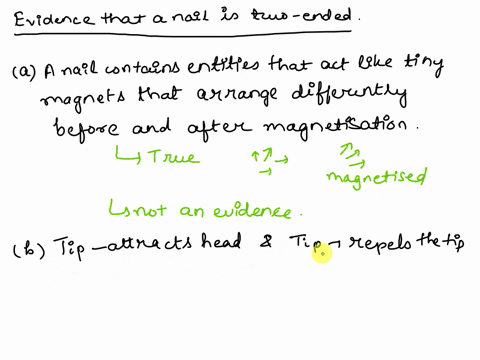 Evidence that a nail is two-ended.
(a) A nail contains entities that act like tiny
magnets that arrange differently
before and after magnetisation.
↳ True
magnetised
↳ not an evidence.
(b) Tip – attracts head & Tip → repels the tip